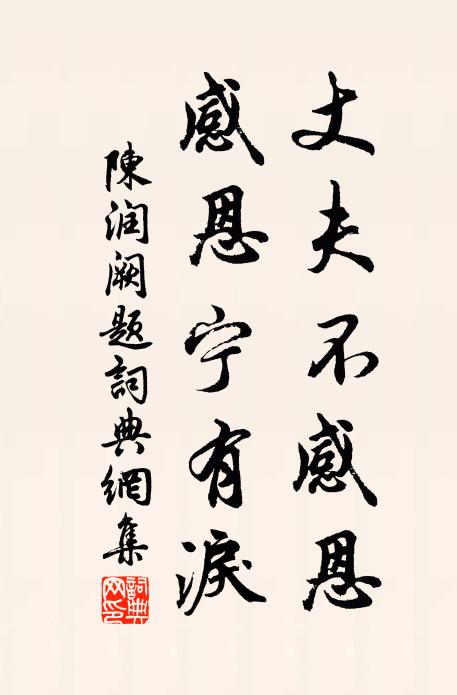 丈夫不感恩
感恩宁有淚
陳润阙題詞典網集
詞典网印